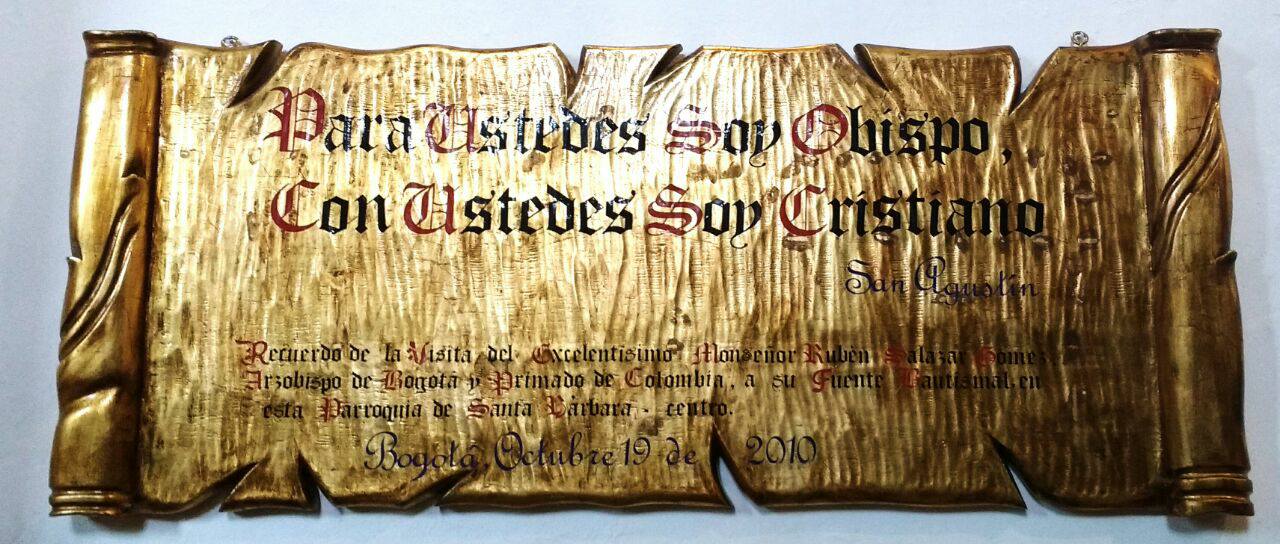 Para Ustedes Soy Obispo,
Con Ustedes Soy Cristiano
San Agustín
Recuerdo de la Visita, del Excelentisimo Monseñor Rubén Salazar Gómez,
Arzobispo de Bogotá y Primado de Colombia, a su Fuente Bautismal, en
esta Parroquia de Santa Bárbara - centro.
Bogotá, Octubre 19 de 2010